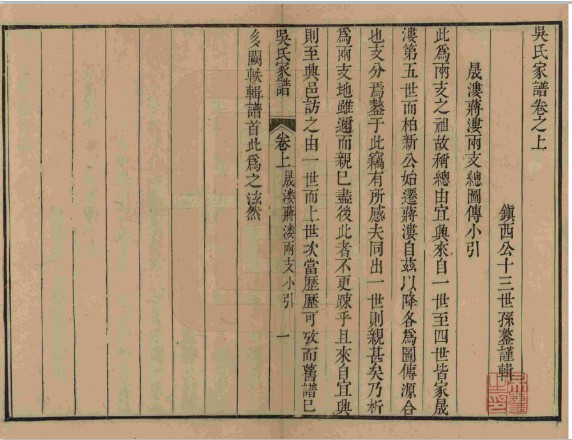 吳氏家譜卷之上
鎮西公十三世孫鏊謹輯
晟漊蔣漊兩支總圖傳小引
此爲兩支之祖故稱總由宜興來自一世至四世皆家晟
漊第五世而柏新公始遷蔣漊自茲以降各爲圖傳源合
也支分焉鏊于此竊有所感夫同出一世則親甚矣乃析
爲兩支地雖邇而親已盡後此者不更踈乎且來自宜興
則至興邑訪之由一世而上世次當歷歷可攷而舊譜已
吳氏家譜
卷上
晟漊蔣漊兩支小引
一
多闕軼輯譜首此爲之泫然